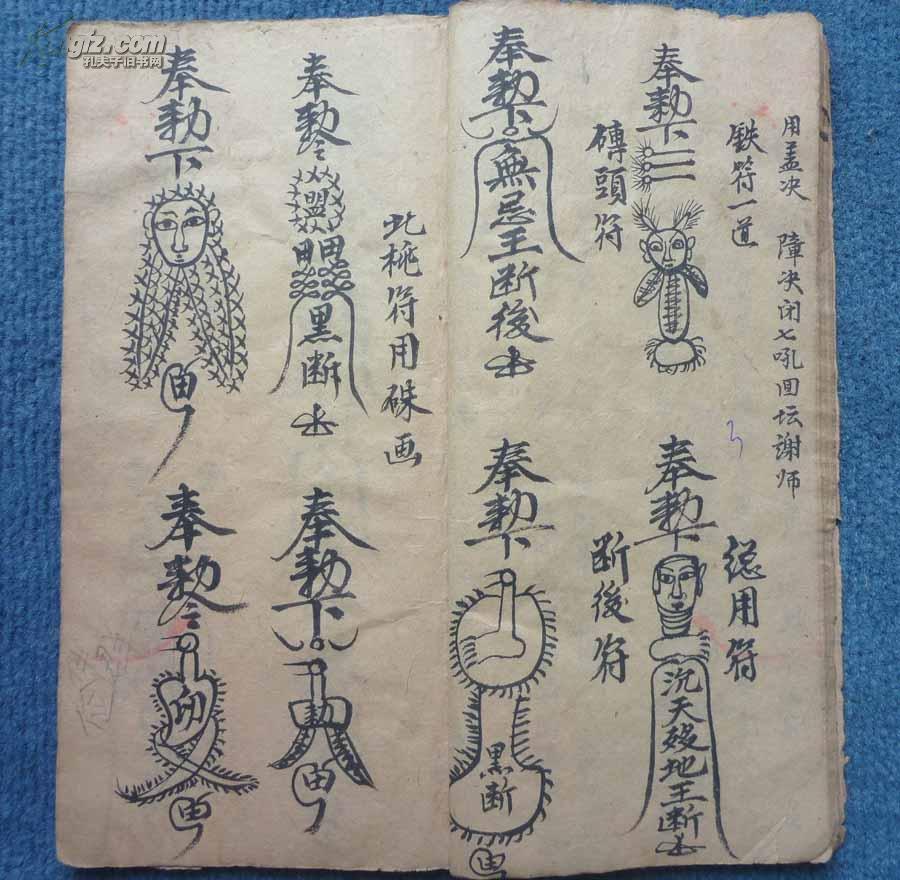 用盖决 障决闭七吼回坛谢师
铁符一道
奉勅下
磚頭符
奉勅下
無忌王断後
総用符
奉勅下
沉天殁地王断
断後符
奉勅下
黒断
此桃符用硃画
奉勅令
黒断
奉勅下
奉勅下
奉勅令
giz.com
孔夫子旧书网